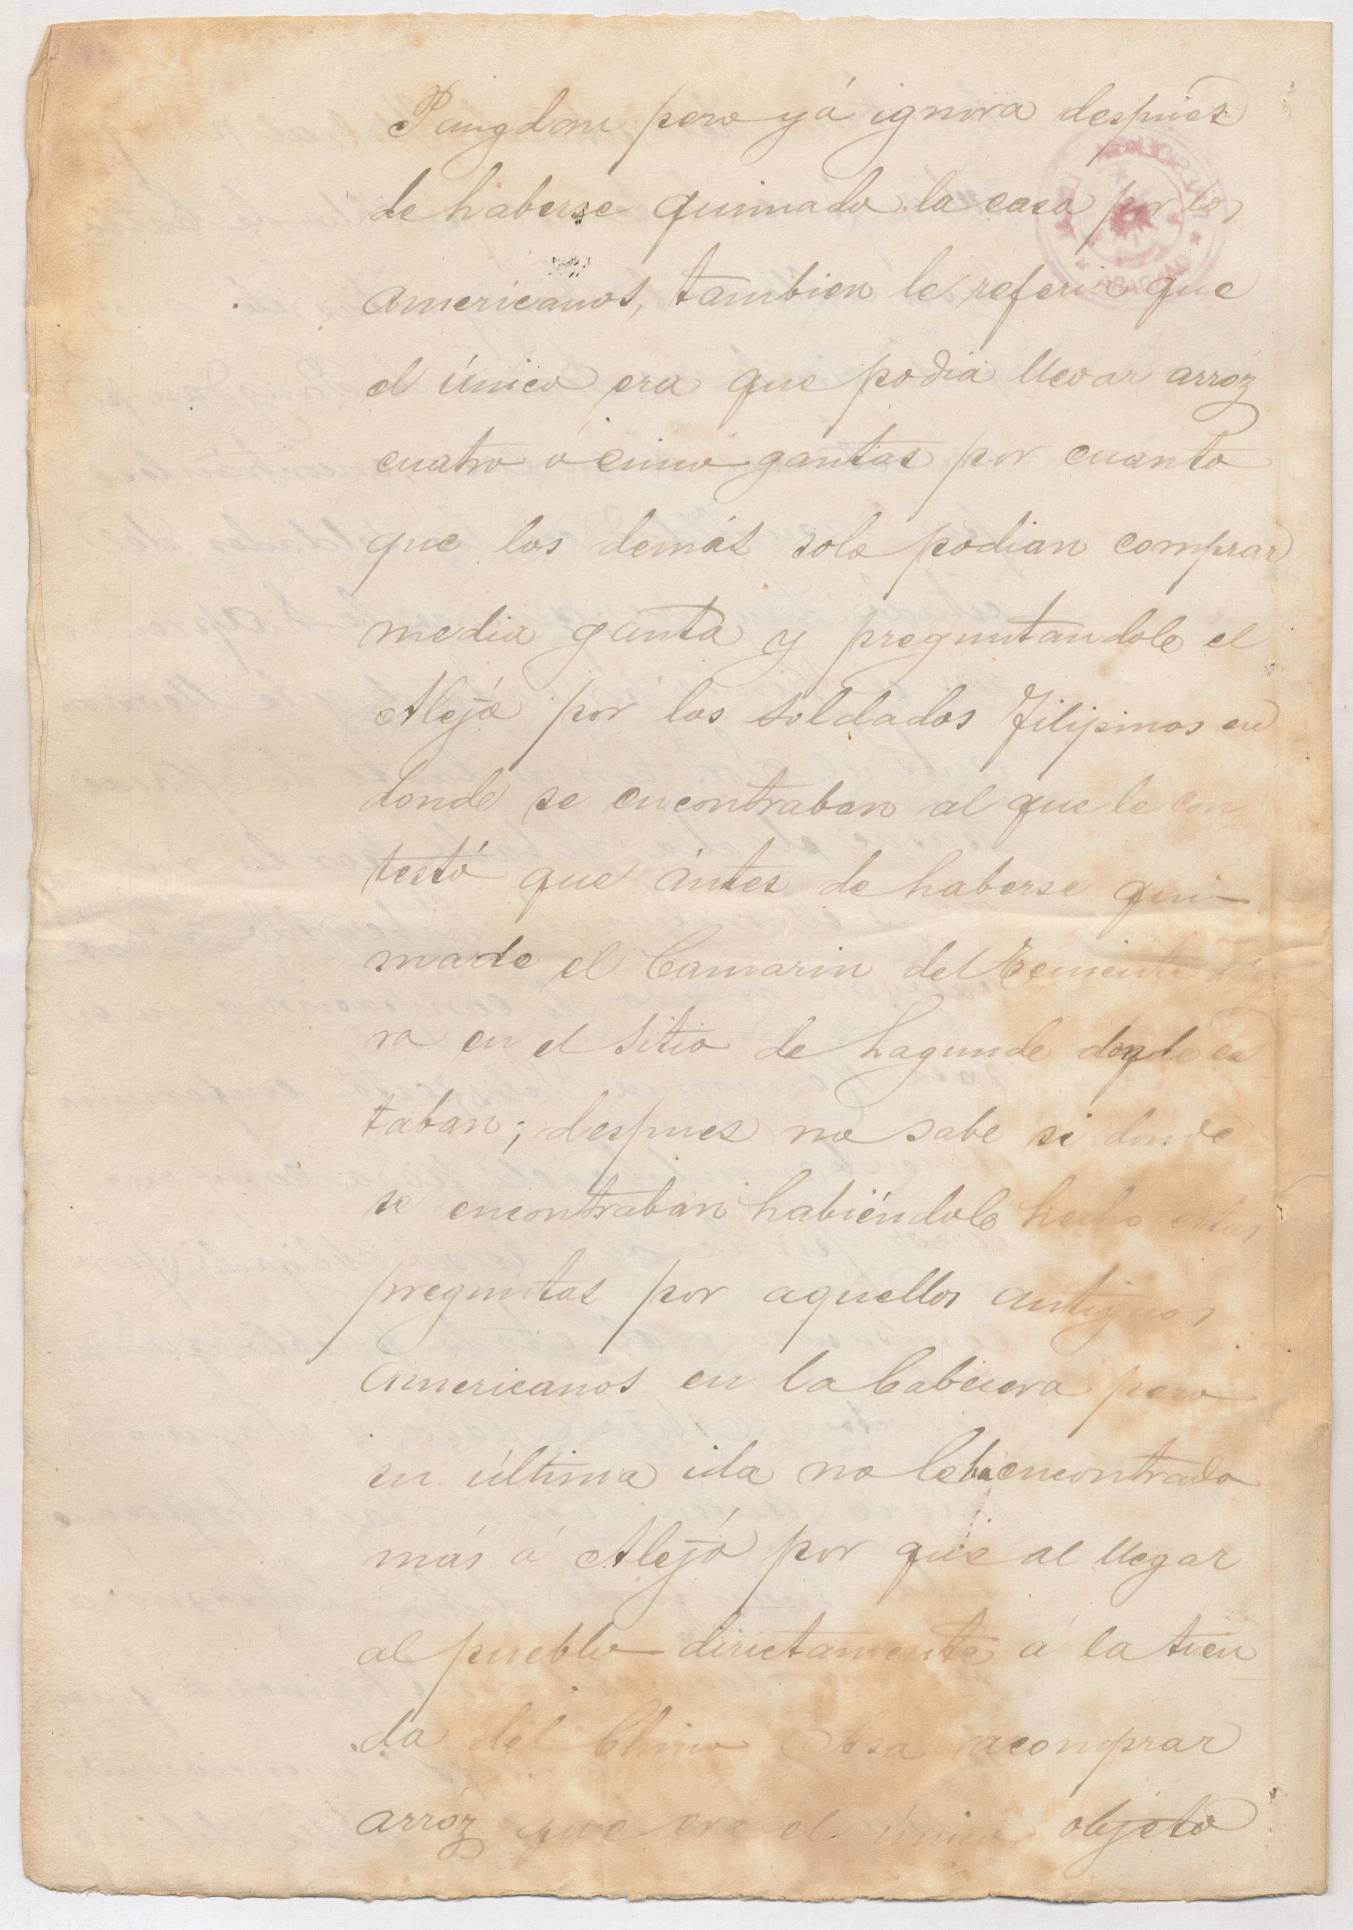 Pangdan pero yá ignora despues
de haberse quimado la casa por los
americanos, tambien le referia que
el único era que podia llevar arroz
cuatro ó cinco gantas por cuanto
que los demás solo podian comprar
media ganta y preguntandole el
Alejo por los soldados Filipinos en
donde se encontraban al que le con
testó que ántes de haberse qui-
mado el Camarin del Teniente
ra en el sitio de Lagunde donde es
taban; despues no sabe si donde
se encontraban habiéndole hecho estas
preguntas por aquellos antiguos
americanos en la Cabecera pero
su última ida no le ha encontrado
más á Alejo por que al llegar
al pueblo directamente á la tien
da del Chino Asa a comprar
arroz que era el único objeto